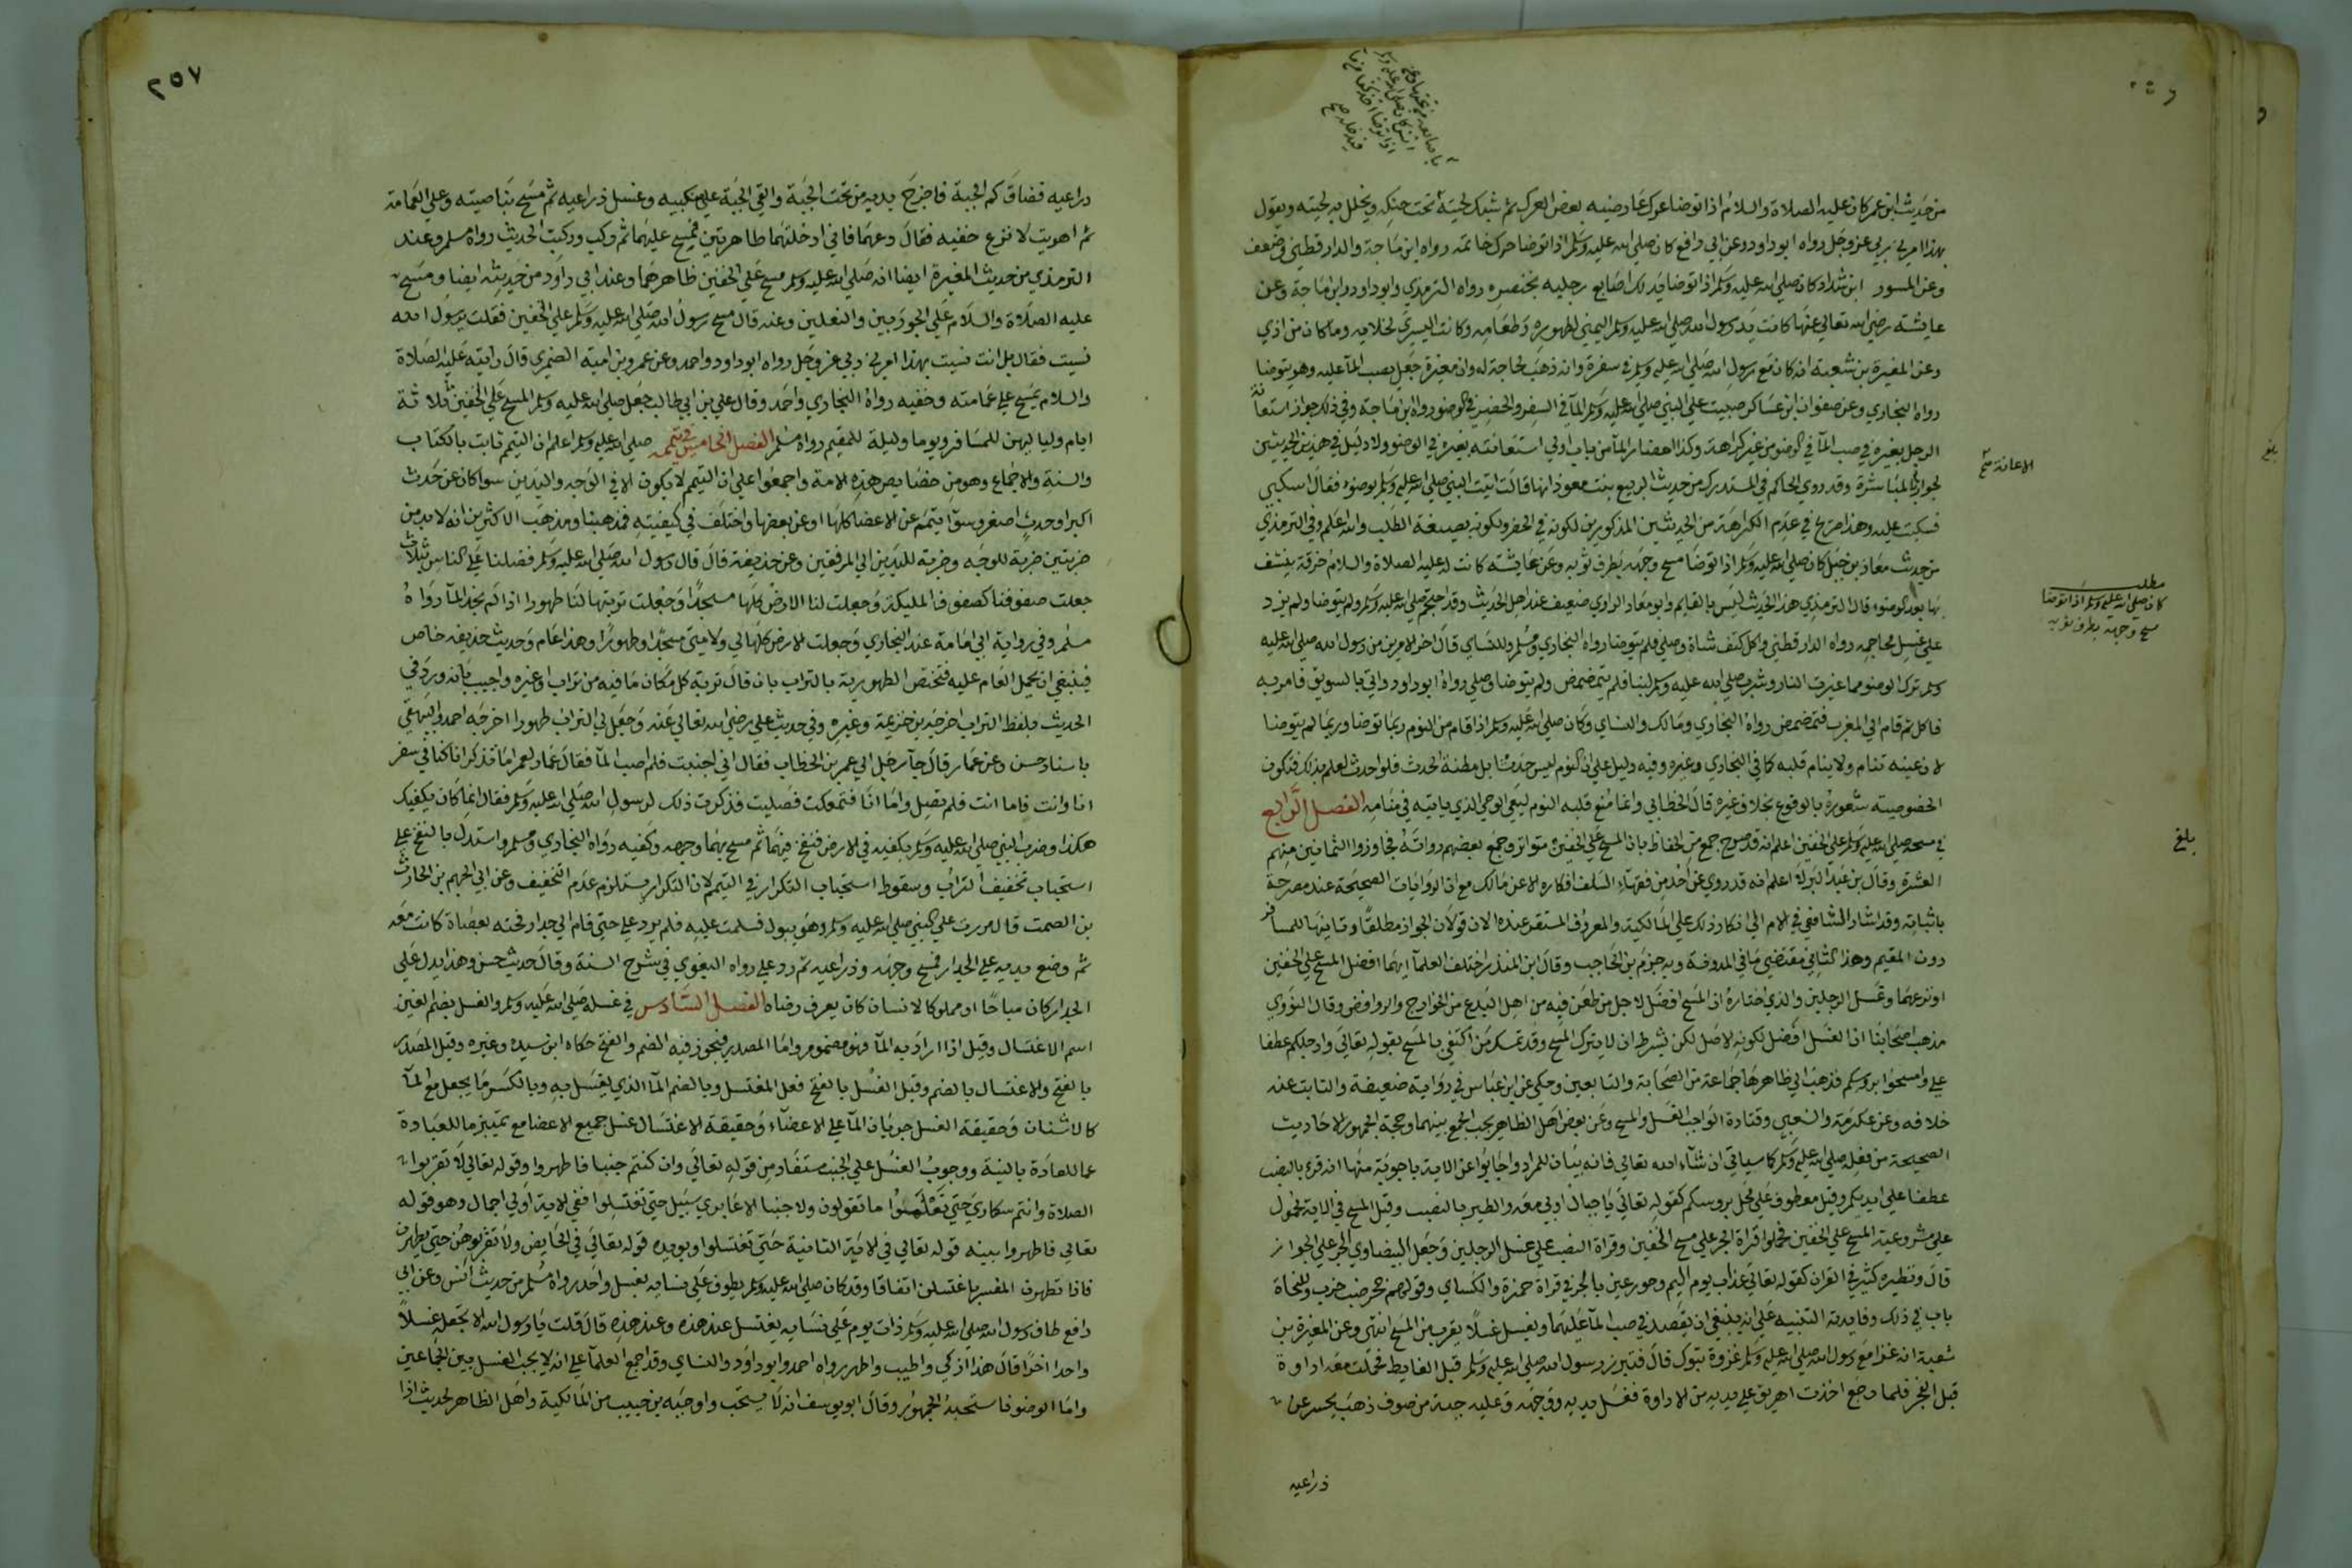 ٢٥٦
من حديث ابن عمر كان عليه الصلاة والسلام اذا توضا عرك عارضيه بعض العرك ثم شبك لحيته تحت حنكه ويخلل به لحيته ويقول
بهذا امرني ربي عز وجل رواه ابو داود وعن ابي رافع كان صلي الله عليه وسلم اذا توضا حرك خاتمه رواه ابن ماجة والدار قطني وضعف
وعن المسور ابن شداد كان صلي الله عليه وسلم اذا توضا يدلك اصابع رجليه بخنصره رواه الترمذي وابو داود وابن ماجة وعن
عايشة رضي الله تعالي عنها كانت يد رسول الله صلي الله عليه وسلم اليمني لطهوره وطعامه وكانت اليسري لخلايه وما كان من اذي
وعن المغيرة بن شعبة انه كان مع رسول الله صلي الله عليه وسلم في سفرة وانه ذهب لحاجة له وان مغيرة جعل يصب المآ عليه وهو يتوضا
رواه البخاري وعن صفوان ابن عساكر صببت علي النبي صلي الله عليه وسلم المآ في السفر والحضر في الوضو رواه ابن ماجة وفي ذلك جواز استعانة
الرجل بغيره في صب المآ في الوضو من غير كراهة وكذا احضار المآ من باب اولي استعانته بغيره في الوضو ولا دليل في هذين الحديثين
لجواز المباشرة وقد روي الحاكم في المستدرك من حديث الربيع بنت معوذ انها قالت اتيت النبي صلي الله عليه وسلم بوضوء فقال اسكبي
فسكبت عليه وهذا صريح في عدم الكراهة من الحديثين المذكورين لكونه في الحضر ولكونه بصيغة الطلب والله اعلم وفي الترمذي
من حديث معاذ بن جبل كان صلي الله عليه وسلم اذا توضا مسح وجهه بطرف ثوبه وعن عايشة كانت له عليه الصلاة والسلام خرقة ينشف
بها بعد الوضوء قال الترمذي هذا الحديث ليس بالقايم وابو معاذ الراوي ضعيف عند اهل الحديث وقد احتجم صلي الله عليه وسلم ولم يتوضا ولم يزد
علي غسل محاجمه رواه الدار قطني واكل كتف شاة وصلي ولم يتوضا رواه البخاري ومسلم وللنساي قال اخر الامرين من رسول الله صلي الله عليه
وسلم ترك الوضو مما غيرت النار وشرب صلي الله عليه وسلم لبنا فلم يتمضمض ولم يتوضا وصلي رواه ابو داود واتي بالسويق فامر به
فاكل ثم قام الي المغرب فتمضمض رواه البخاري ومالك والنساي وكان صلي الله عليه وسلم اذا قام من النوم ربما توضا وربما لم يتوضا
لان عينه تنام ولا ينام قلبه كما في البخاري وغيره وفيه دليل علي ان النوم ليس حدثا بل مظنة الحدث فلو احدث لعلم بذلك فتكون
الخصوصيته شعوره بالوقوع بخلاف غيره قال الخطابي وانما منع قلبه النوم ليعي الوحي الذي ياتيه في منامه الفصل الرابع
في مسحه صلي الله عليه وسلم علي الخفين اعلم انه قد صرح جمع من الحفاظ بان المسح علي الخفين متواتر وجمع بعضهم رواته فجاوزوا الثمانين منهم
العشرة وقال بن عبد البر لا اعلم انه قد روي عن احد من فقهاء السلف انكاره الا عن مالك مع ان الروايات الصحيحة عنه مصرحة
باثباته وقد اشار الشافعي في الام الي انكار ذلك علي المالكية والمعروف المستقر عنده الان قولان الجواز مطلقا وثانيها للمسافر
دون المقيم وهذا الثاني مقتضي ما في المدونة وبه جزم بن الحاجب وقال ابن المنذر اختلف العلمآ ايهما افضل المسح علي الخفين
او نزعهما وغسل الرجلين والذي اختاره ان المسح افضل لاجل من طعن فيه من اهل البدع من الخوارج والروافض وقال النووي
مذهب اصحابنا ان الغسل افضل لكونه الاصل لكن بشرط ان لا يترك المسح وقد تمسك من اكتفي بالمسح بقوله تعالي وارجلكم عطفا
علي وامسحوا بروسكم فذهب الي ظاهرها جماعة من الصحابة والتابعين وحكي عن ابن عباس في رواية ضعيفة والثابت عنه
خلافه وعن عكرمة والشعبي وقتادة الواجب الغسل والمسح وعن بعض اهل الظاهر يجب الجمع بينهما وحجة الجمهور الاحاديث
الصحيحة من فعله صلي الله عليه وسلم كما سياتي ان شآء الله تعالي فانه بيان للمراد واجابوا عن الاية باجوبة منها انه قرء بالنصب
عطفا علي ايديكم وقيل معطوف علي محل بروسكم كقوله تعالي يا جبال اوبي معه والطير بالنصب وقيل المسح في الاية محمول
علي مشروعية المسح علي الخفين فحملوا قراة الجر علي مسح الخفين وقراة النصب علي غسل الرجلين وجعل البيضاوي الجر علي الجواز
قال ونظيره كثير في القران كقوله تعالي عذاب يوم اليم وحور عين بالجر في قراة حمزة والكساي وقولهم جحر ضب خرب وللنحاة
باب في ذلك وفايدته التنبيه علي انه ينبغي ان يقصد في صب المآ عليهما ويغسل غسلا يقرب من المسح انتهي وعن المغيرة بن
شعبة انه غزا مع رسول الله صلي الله عليه وسلم غزوة تبوك قال فتبرز رسول الله صلي الله عليه وسلم قبل الغايط فحملت معه اداوة
قبل الفجر فلما رجع اخذت اهريق علي يديه من الاداوة فغسل يديه ووجهه وعليه جبة من صوف ذهب يحسر عن
ذراعيه
الاعانة صح
مطلب
كان صلي الله عليه وسلم اذا توضا
مسح وجهه بطرف ثوبه
بلغ
بلغ
٢٥٧
ذراعيه فضاق كم الجبة فاخرج يديه من تحت الجبة والقي الجبة علي منكبيه وغسل ذراعيه ثم مسح بناصيته وعلي العمامة
ثم اهويت لانزع خفيه فقال دعهما فاني ادخلتهما طاهرتين فمسح عليهما ثم ركب وركبت الحديث رواه مسلم وعند
الترمذي من حديث المغيرة ايضا انه صلي الله عليه وسلم مسح علي الخفين ظاهرهما وعند ابي داود من حديثه ايضا ومسح
عليه الصلاة والسلام علي الجوربين والنعلين وعنه قال مسح رسول الله صلي الله عليه وسلم علي الخفين فقلت يرسول الله
نسيت فقال بل انت نسيت بهذا امرني ربي عز وجل رواه ابو داود واحمد وعن عمرو بن امية الضمري قال رايته عليه الصلاة
والسلام يمسح علي عمامته وخفيه رواه البخاري واحمد وقال علي بن ابي طالب جعل صلي الله عليه وسلم المسح علي الخفين ثلاثة
ايام ولياليهن للمسافر ويوما وليلة للمقيم رواه مسلم الفصل الخامس في تيممه صلي الله عليه وسلم اعلم ان التيمم ثابت بالكتاب
والسنة والاجماع وهو من خصايص هذه الامة واجمعوا علي ان التيمم لا يكون الا في الوجه واليدين سوا كان عن حدث
اكبر او حدث اصغر وسوآ تيمم عن الاعضا كلها او عن بعضها واختلف في كيفيته فمذهبنا ومذهب الاكثرين انه لا بد من
ضربتين ضربة للوجه وضربة لليدين الي المرفقين وعن حذيفة قال قال رسول الله صلي الله عليه وسلم فضلنا علي الناس بثلاث
جعلت صفوفنا كصفوف المليكة وجعلت لنا الارض كلها مسجدا وجعلت تربتها لنا طهورا اذا لم نجد المآ رواه
مسلم وفي رواية ابي امامة عند البخاري وجعلت الارض كلها لي ولامتي مسجدا وطهورا وهذا عام وحديث حذيفه خاص
فينبغي ان يحمل العام عليه فتختص الطهورية بالتراب بان قال تربة كل مكان ما فيه من تراب او غيره واجيب بانه ورد في
الحديث بلفظ التراب اخرجه بن خزيمة وغيره وفي حديث علي رضي الله تعالي عنه وجعل لي التراب طهورا اخرجه احمد والبيهقي
باسناد حسن وعن عمار قال جآ رجل الي عمر بن الخطاب فقال اني اجنبت فلم اصب المآ فقال عمار لعمر اما تذكر انا كنا في سفر
انا وانت فاما انت فلم تصل واما انا فتمعكت فصليت فذكرت ذلك لرسول الله صلي الله عليه وسلم فقال انما كان يكفيك
هكذا وضرب النبي صلي الله عليه وسلم بكفيه في الارض فنفخ فيهما ثم مسح بهما وجهه وكفيه رواه البخاري ومسلم واستدل بالنفخ علي
استحباب تخفيف التراب وسقوط استحباب التكرار في التيمم لان التكرار يستلزم عدم التخفيف وعن ابي الجهم بن الحارث
بن الصمت قال مررت علي النبي صلي الله عليه وسلم وهو يبول فسلمت عليه فلم يرد علي حتي قام الي جدار فحته بعصاة كانت معه
ثم وضع يديه علي الجدار فمسح وجهه وذراعيه ثم رد علي رواه البغوي في شرح السنة وقال حديث حسن وهذا يدل علي
الجدار كان مباحا او مملوكا لانسان كان يعرف رضاه الفصل السادس في غسله صلي الله عليه وسلم والغسل بضم الغين
اسم الاغتسال وقيل اذا اراد به المآ فهو مضموم واما المصدر فيجوز فيه الضم والفتح حكاه ابن سيده وغيره وقيل المصدر
بالفتح والاغتسال بالضم وقيل الغسل بالفتح فعل المغتسل وبالضم المآ الذي يغتسل به وبالكسر ما يجعل مع المآ
كالاشنان وحقيقة الغسل جريان المآ علي الاعضآء وحقيقة الاغتسال غسل جميع الاعضا مع تمييز ما للعبادة
عما للعادة بالنية ووجوب الغسل علي الجنب مستفاد من قوله تعالي وان كنتم جنبا فاطهروا وقوله تعالي لا تقربوا
الصلاة وانتم سكاري حتي تعلموا ما تقولون ولا جنبا الا عابري سبيل حتي تغتسلوا ففي الاية اولي اجمال وهو قوله
تعالي فاطهروا بينه قوله تعالي في الاية الثانية حتي تغتسلوا ويويده قوله تعالي في الحايض ولا تقربوهن حتي يطهرن
فاذا تطهرن المفسر باغتسلن اتفاقا وقد كان صلي الله عليه وسلم يطوف علي نسايه بغسل واحد رواه مسلم من حديث انس وعن ابي
رافع طاف رسول الله صلي الله عليه وسلم ذات يوم علي نسايه يغتسل عند هذه وعند هذه قال قلت يا رسول الله الا تجعله غسلا
واحدا اخرا قال هذا ازكي واطيب واطهر رواه احمد وابو داود والنساي وقد اجمع العلمآ علي انه لا يجب الغسل بين الجماعين
واما الوضو فاستحبه الجمهور وقال ابو يوسف انه لا يستحب واوجبه بن حبيب من المالكية واهل الظاهر لحديث اذا